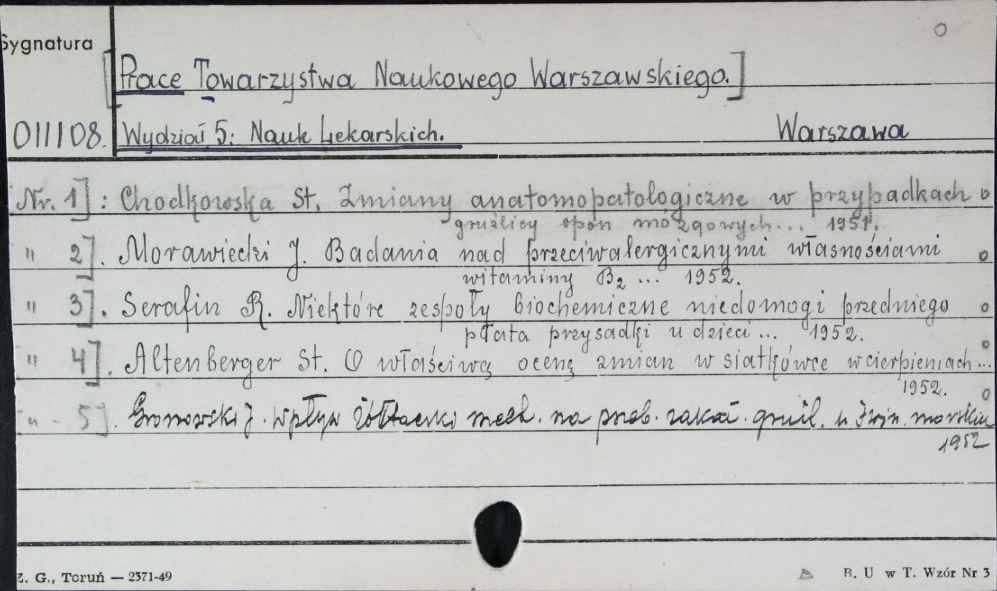 Sygnatura
[Prace Towarzystwa Naukowego Warszawskiego.]
011108. Wydział 5: Nauk Lekarskich. Warszawa
Nr. 1]: Chodkowska St. Zmiany anatomopatologiczne w przypadkach
gruźlicy opon mózgowych... 1951.
" 2]. Morawiecki J. Badania nad przeciwalergicznymi własnościami
witaminy B₂ ... 1952.
" 3]. Serafin R. Niektóre zespoły biochemiczne niedomogi przedniego
płata przysadki u dzieci... 1952.
" 4]. Altenberger St. O właściwą ocenę zmian w siatkówce w cierpieniach...
1952.
" - 5]. Gronowski J. Wpływ żółtaczki mech. na przeb. zakaż. gruźl. u świn. morskiej
1952
Z. G., Toruń — 2371-49
B. U w T. Wzór Nr 3